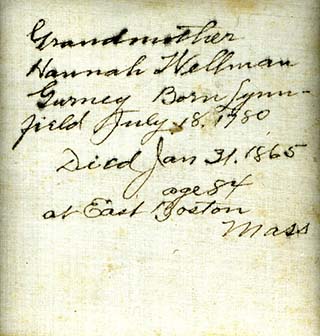 Grandmother
Hannah Wellman
Gurney Born Lynn-
field July, 18, 1780
Died Jan 31, 1865
age 84
at East Boston
Mass